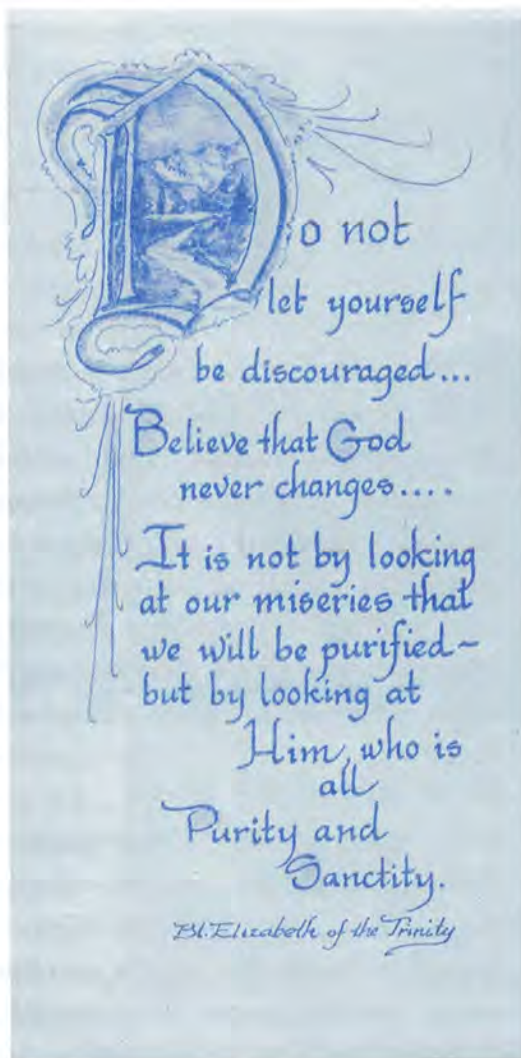 Do not
let yourself
be discouraged...
Believe that God
never changes....
It is not by looking
at our miseries that
we will be purified~
but by looking at
Him, who is
all
Purity and
Sanctity.
Bl. Elizabeth of the Trinity